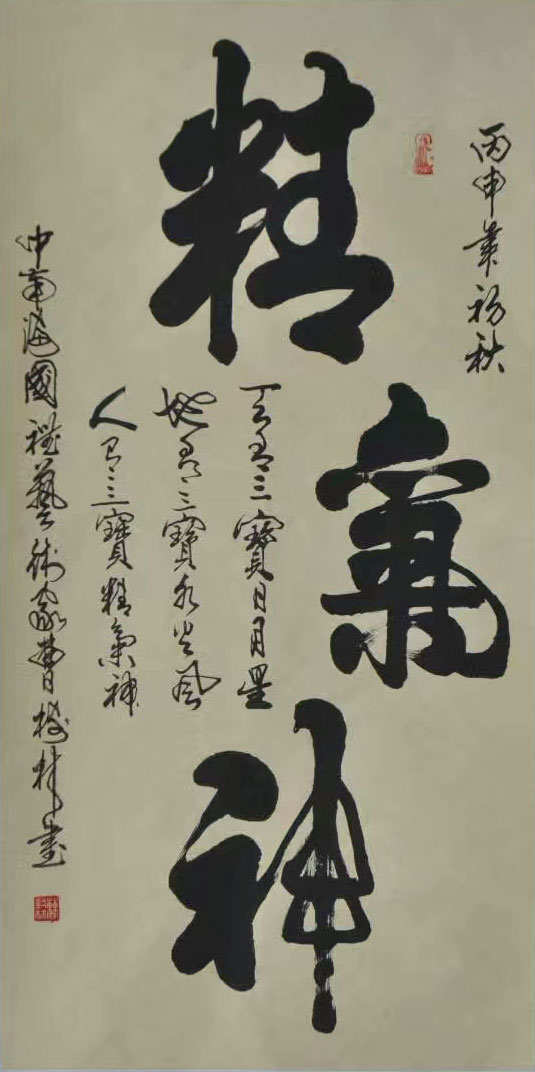 丙申年初秋
精
氣
神
天有三寶日月星
地有三寶水火風
人有三寶精氣神
中南海國禮藝術家曹樹林書